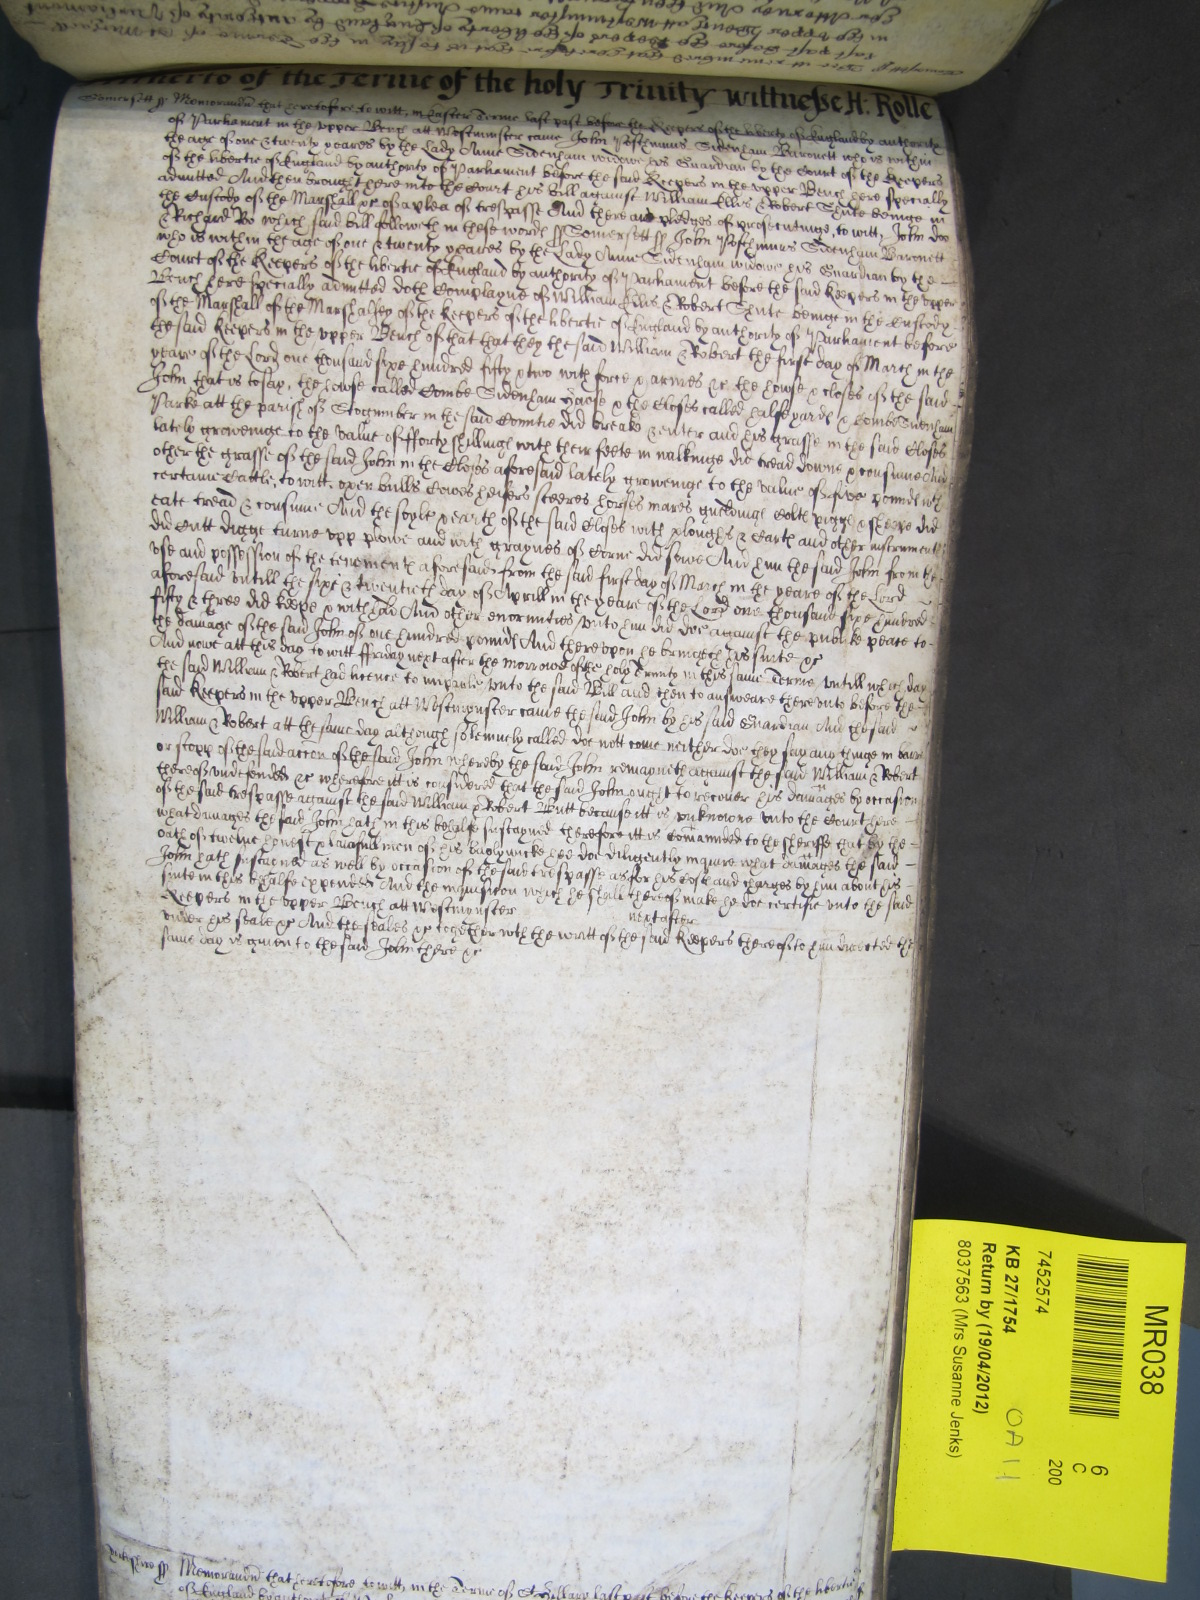 hitherto of the Terme of the holy Trinity wittnesse H. Rolle
Somersett ss Memorandu that heretofore to witt, in Easter Terme last past before the Keepers of the liberty of England by authority
of Parliament in the upper Bench att Westminster came John Posthumus Sidenham Baronett who is within
the age of one & twenty yeares by the Lady Anne Sidenham widowe his Guardian by the Court of the Keepers
of the libertie of England by authority of Parliament before the said Keepers in the upper Bench here specially
admitted And then brought here into the Court his bill against William Ellis & Robert Shute beinge in
the Custody of the Marshall &c of a plea of trespasse And there are pledges of prosecutinge, to witt, John Doe
& Richard Ro which said bill followeth in these words ss Somersett ss John Posthumus Sidenham Baronett
who is within the age of one & twenty yeares by the Lady Anne Sidenham widowe his Guardian by the
Court of the Keepers of the libertie of England by authority of Parliament before the said Keepers in the upper
Bench here specially admitted doth Complayne of William Ellis & Robert Shute beinge in the Custody
of the Marshall of the Marshalsey of the Keepers of the libertie of England by authority of Parliament before
the said Keepers in the upper Bench of that that they the said William & Robert the first day of March in the
yeare of the Lord one thousand sixe hundred fifty & two with force & armes &c the howse & closes of the said
John that is to say, the house called Combe Sidenham House & the Closes called halfe yards & Combe Sidenham
Parke att the parish of Stogumber in the said Countie did breake & enter and his grasse in the said Closes
lately groweinge to the value of fforty shillings with their feete in walkinge did tread downe & consume And
other the grasse of the said John in the Closes aforesaid lately groweinge to the value of five pounds with
certaine Cattle, to witt, oxen bulls Cowes heifers steeres horses mares gueldings Colts piggs & sheepe did
eate tread & consume And the soyle & earth of the said Closes with ploughs & Carts and other instruments
did Cutt digge turne upp plowe and with graynes of Corne did sowe And him the said John from the
use and possession of the tenements aforesaid from the said first day of March in the yeare of the Lord
aforesaid untill the sixe & twentieth day of Aprill in the yeare of the Lord one thousand sixe hundred
fifty & three did keepe & with hold And other enormities unto him did doe against the publike peace to
the damage of the said John of one hundred pounds And thereupon he bringeth his suite &c
And nowe att this day to witt ffriday next after the morrowe of the holy Trinity in this same Terme untill which day
the said William & Robert had licence to imparle unto the said Bill and then to answeare thereunto before the
said Keepers in the upper Bench att Westminster came the said John by his said Guardian And the said
William & Robert att the same day although solemnely called doe nott come neither doe they say any thinge in barre
or stopp of the said accon of the said John whereby the said John remayneth against the said William & Robert
thereof undefended &c Wherefore itt is considered that the said John ought to recover his damages by occasion
of the said trespasse against the said William & Robert Butt because itt is unknowne unto the Court here
what damages the said John hath in this behalfe sustayned therefore itt is Comannded to the sheriffe that by the
oath of twelve honest & lawfull men of his baylywicke hee doe diligently inquire what damages the said
John hath sustained as well by occasion of the said trespasse as for his Costs and charges by him about his
suite in this behalfe expended And the inquisicon which he shall thereof make he doe certifie unto the said
Keepers in the upper Bench att Westminster next after
under his seale &c And the seales &c together wth the writt of the said Keepers thereof to him directed the
same day is given to the said John there &c
Memorandu that heretofore to witt, in the Terme of St Hillary last past before the Keepers of the libertie
of England by authority of
MR038
7452574
KB 27/1754
Return by (19/04/2012)
8037563 (Mrs Susanne Jenks)
6
C
200